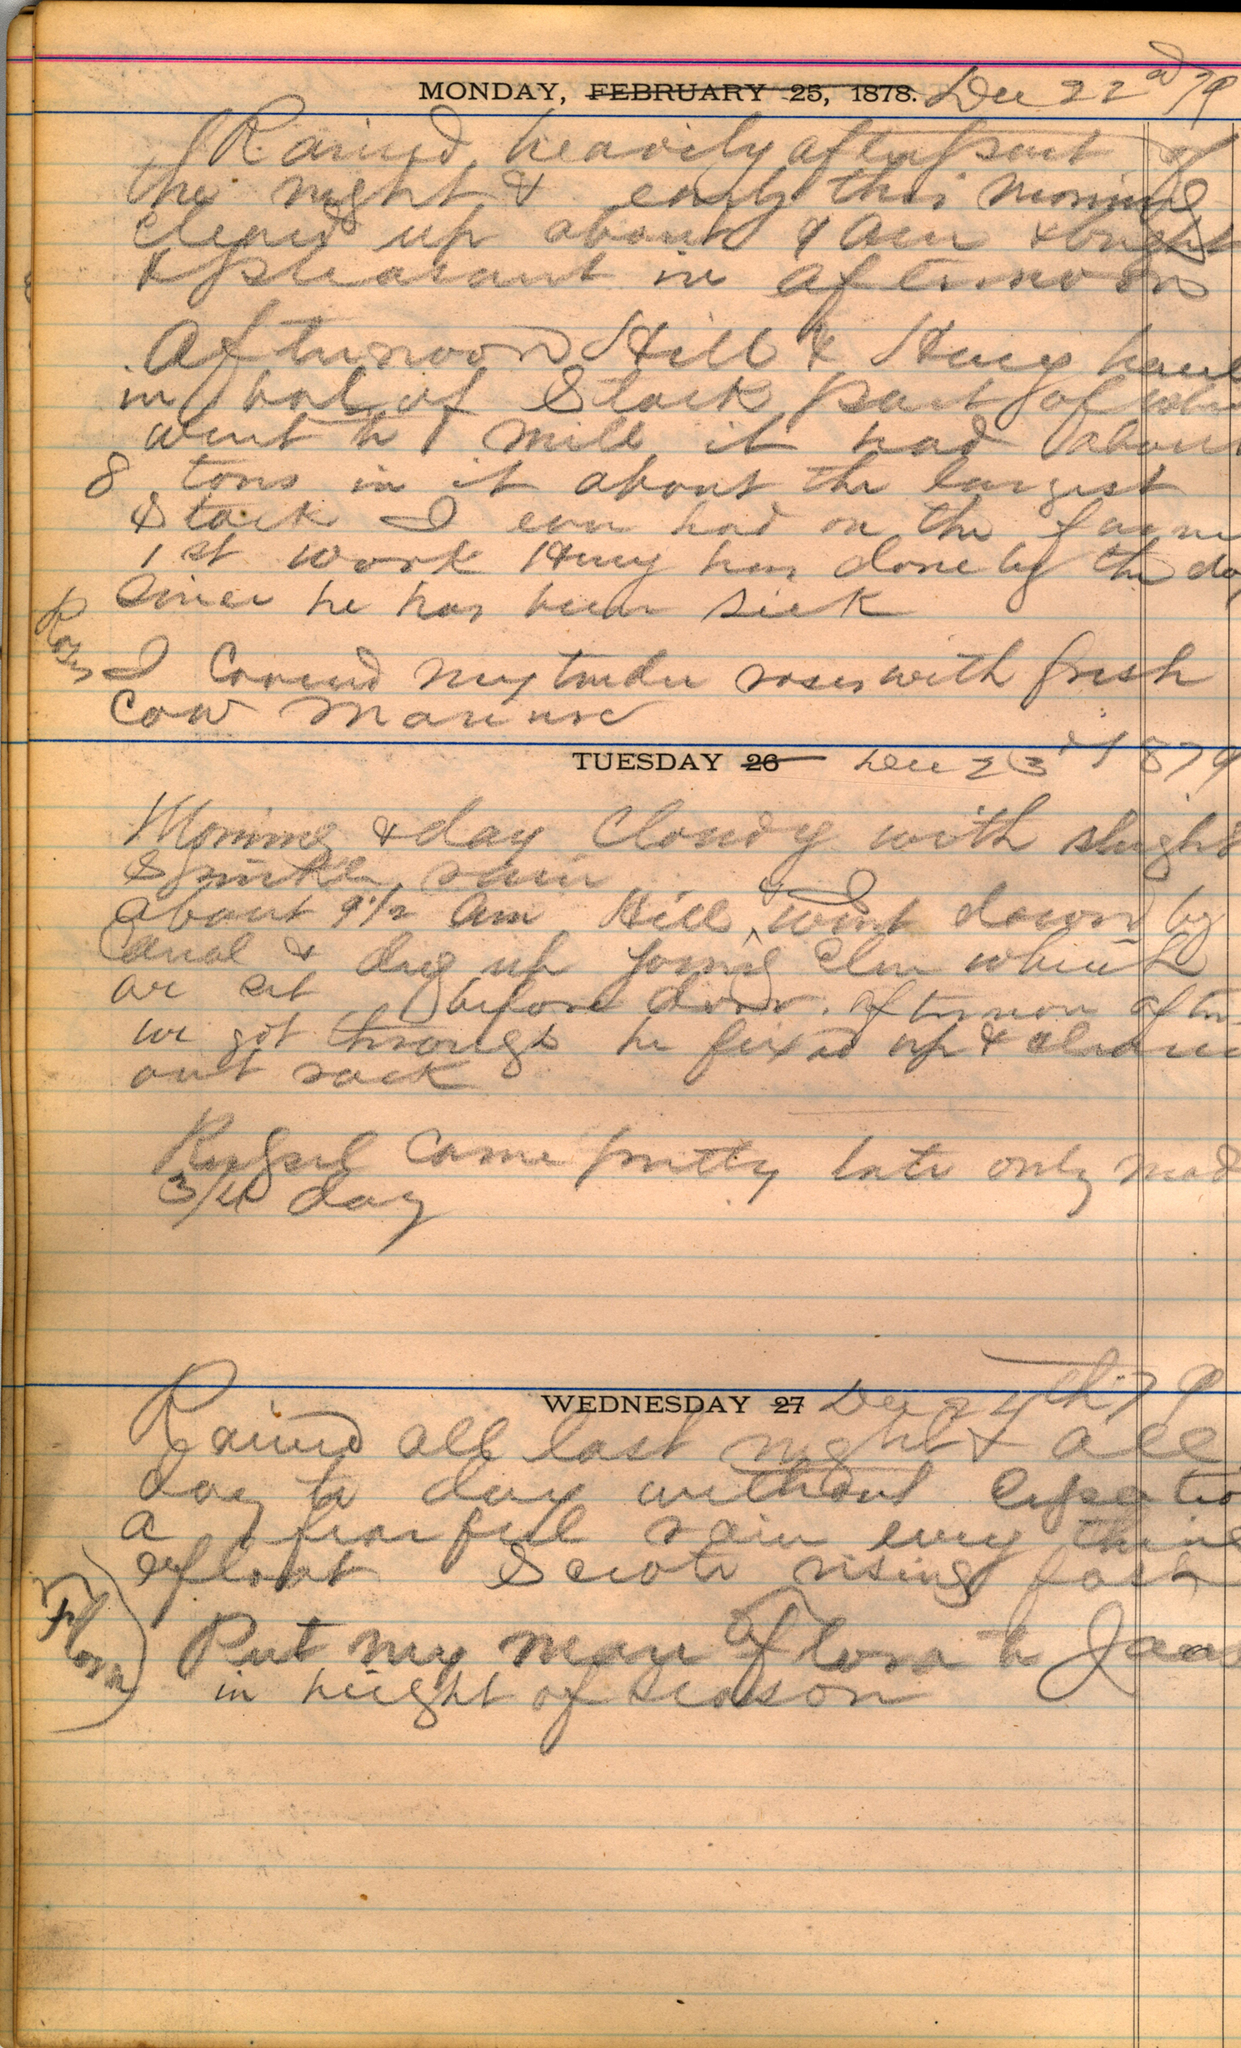 MONDAY, FEBRUARY 25, 1878. Dec 22nd 79
Rained heavily after part of
the night & early this morning
cleard up about 9 am & bright
& pleasant in afternoon
Afternoon Hill & Huey haul
in bal of Stack part of whi
went to mill it had about
8 tons in it about the largest
Stack I ever had on the farm
1st work Huey has done by the da
Since he has been sick
Roses
I Covered my tender roses with fresh
Cow Manure
TUESDAY 26 Dec 23rd 1879
Morning & day Cloudy with slight
Sprinkle rain
about 9 1/2 am Hill & I went down by
Canal & dug up young Elm which
we set before door. afternoon after
we got through he fixed up & cleaned
out rack
came pretty late only mad
3/4 day
WEDNESDAY 27 Dec 24th 79
Rained all last night & all
day to day without
a fearful rain every thing
afloat Scioto rising fast
Flora
Put my mare Flora to
in height of season